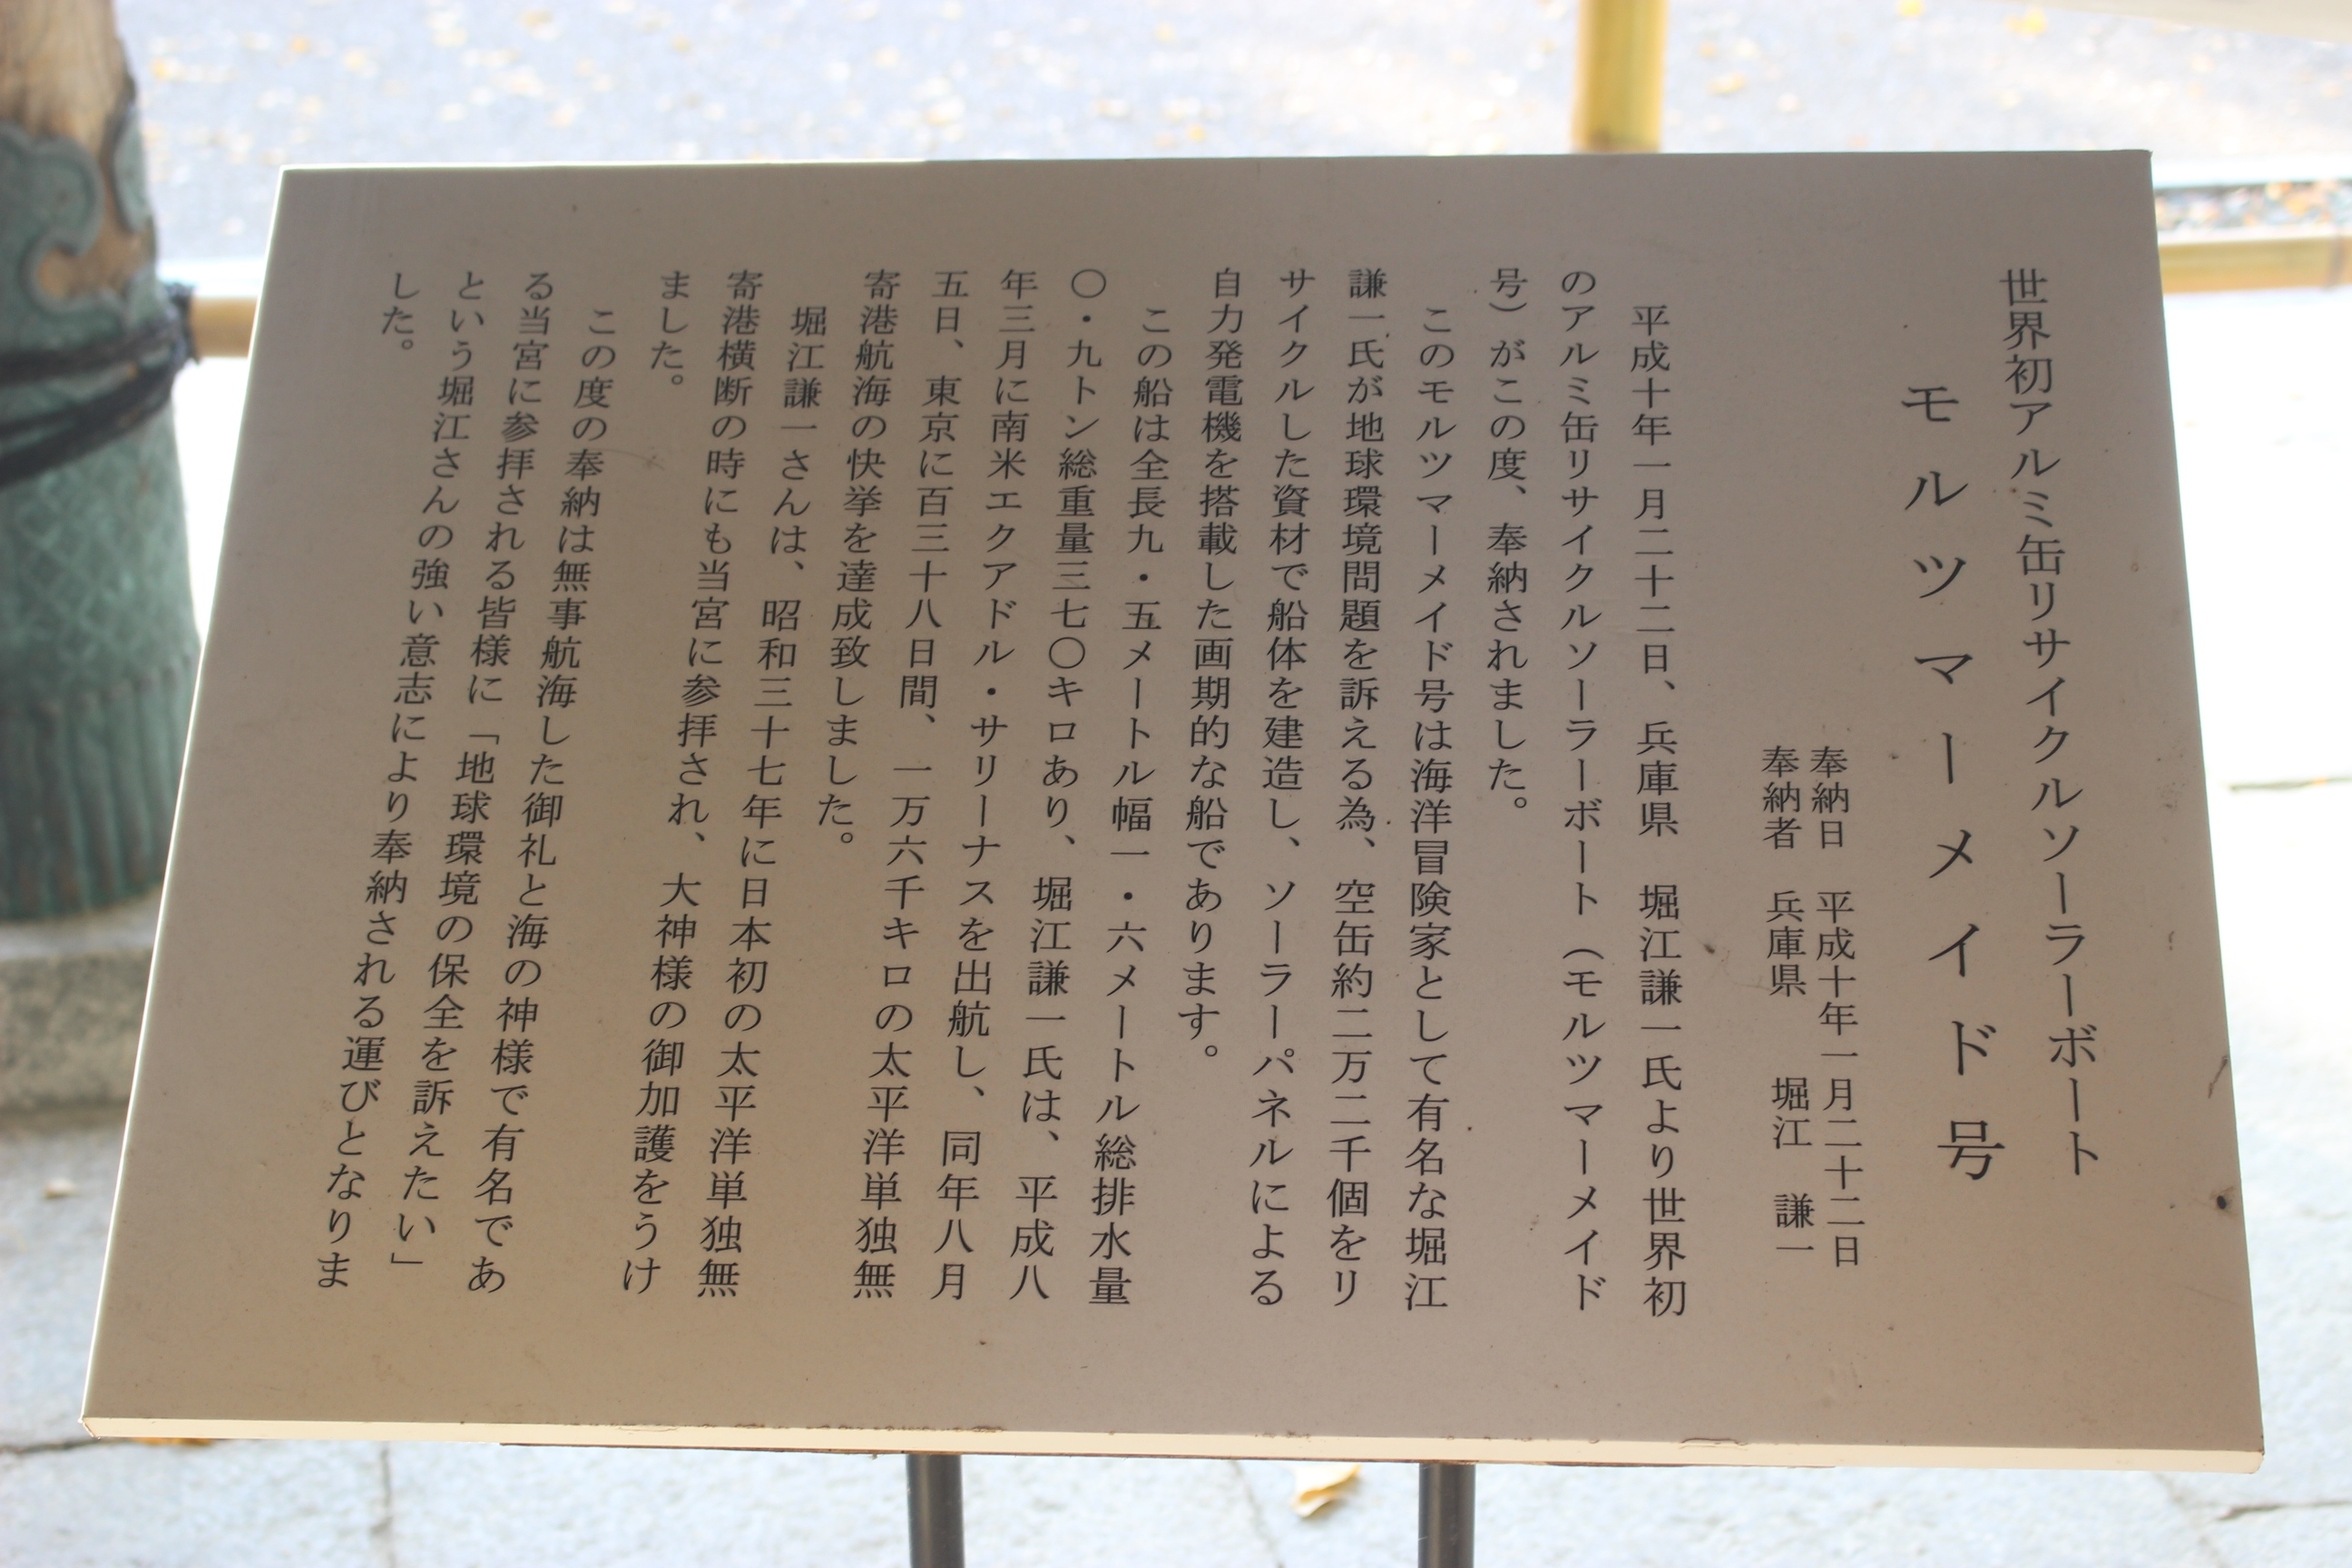 世界初アルミ缶リサイクルソーラーボート
モルツマーメイド号
奉納日　平成十年一月二十二日
奉納者　兵庫県　　堀江　謙一
平成十年一月二十二日、兵庫県　堀江謙一氏より世界初
のアルミ缶リサイクルソーラーボート（モルツマーメイド
号）がこの度、奉納されました。
このモルツマーメイド号は海洋冒険家として有名な堀江
謙一氏が地球環境問題を訴える為、空缶約二万二千個をリ
サイクルした資材で船体を建造し、ソーラーパネルによる
自力発電機を搭載した画期的な船であります。
この船は全長九・五メートル幅一・六メートル総排水量
〇・九トン総重量三七〇キロあり、堀江謙一氏は、平成八
年三月に南米エクアドル・サリーナスを出航し、同年八月
五日、東京に百三十八日間、一万六千キロの太平洋単独無
寄港航海の快挙を達成致しました。
堀江謙一さんは、昭和三十七年に日本初の太平洋単独無
寄港横断の時にも当宮に参拝され、大神様の御加護をうけ
ました。
この度の奉納は無事航海した御礼と海の神様で有名であ
る当宮に参拝される皆様に「地球環境の保全を訴えたい」
という堀江さんの強い意志により奉納される運びとなりま
した。